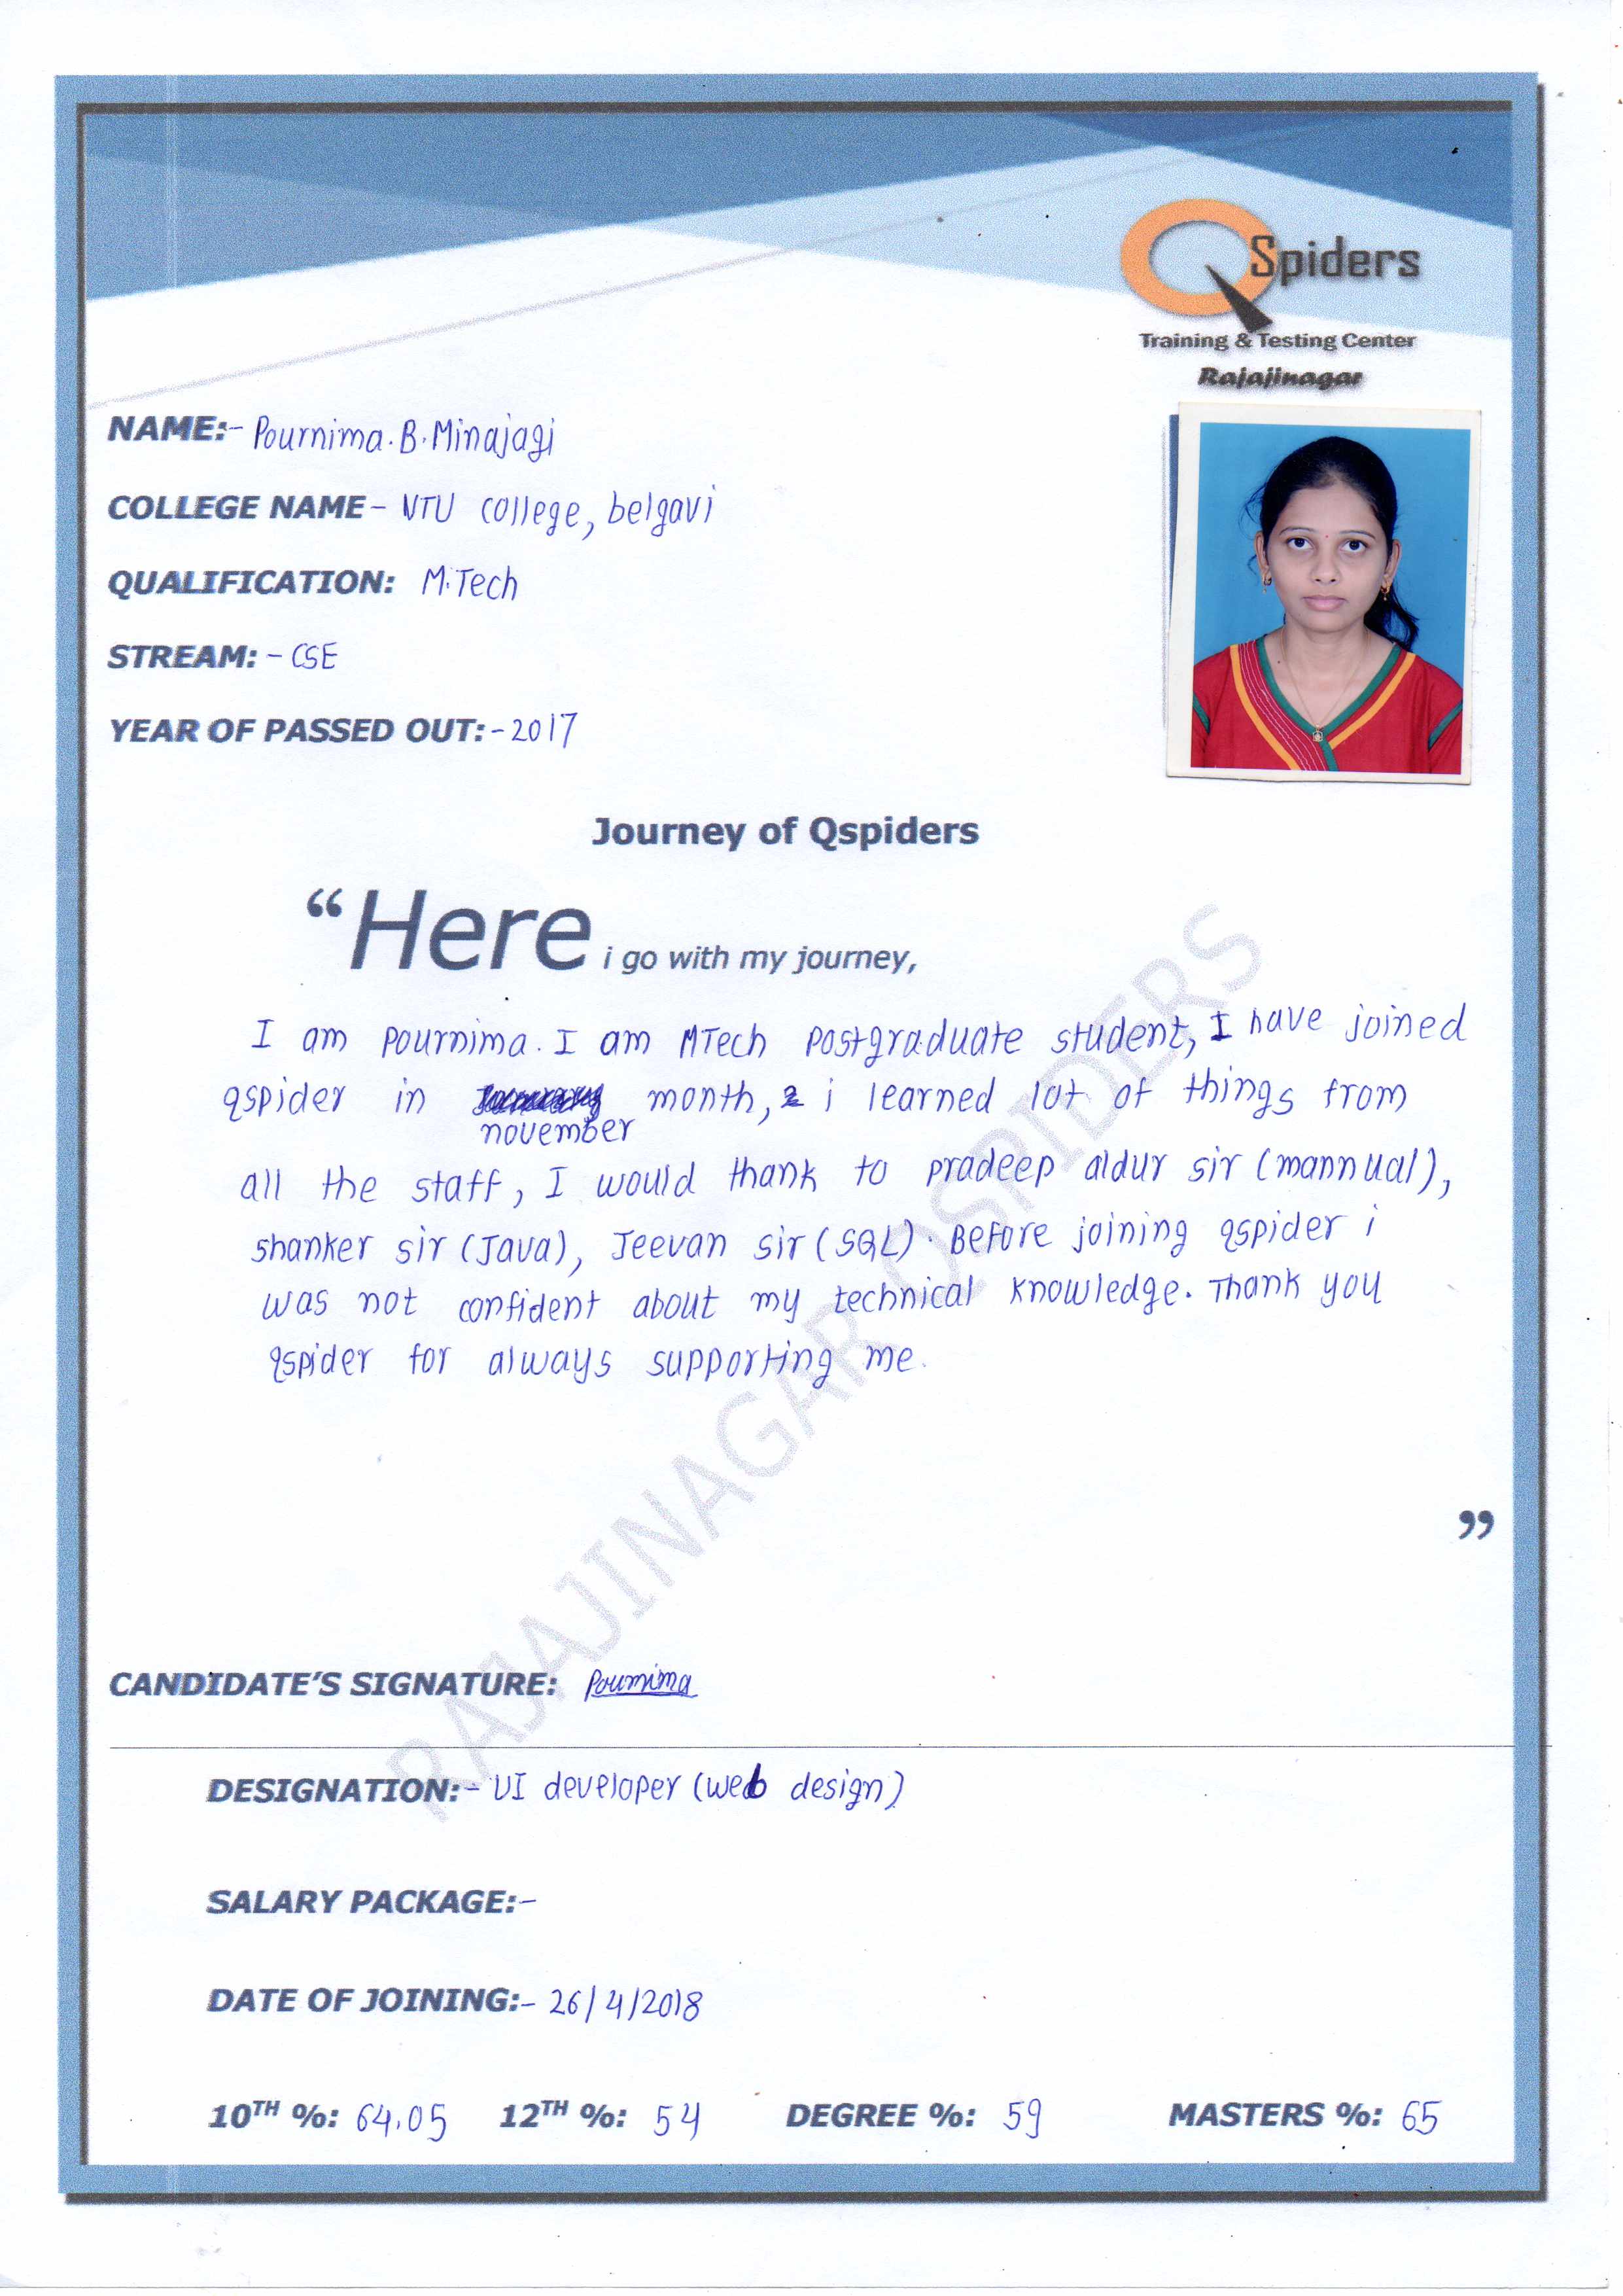 Spiders
Training & Testing Center
Rajajinagar
NAME:- Pournima.B.Minajagi
COLLEGE NAME - VTU college, belgavi
QUALIFICATION: M.Tech
STREAM: - CSE
YEAR OF PASSED OUT: - 2017
Journey of Qspiders
“Here i go with my journey,
I am pournima. I am MTech postgraduate student, I have joined
qspider in month, i learned lot of things from
november
all the staff, I would thank to pradeep aldur sir (mannual),
shanker sir (Java), Jeevan sir (SQL). Before joining qspider i
was not confident about my technical knowledge. Thank you
qspider for always supporting me.
”
RAJAJINAGAR QSPIDERS
CANDIDATE’S SIGNATURE: Pournima
DESIGNATION:- UI developer (web design)
SALARY PACKAGE:-
DATE OF JOINING:- 26/4/2018
10TH %: 64.05 12TH %: 54 DEGREE %: 59 MASTERS %: 65